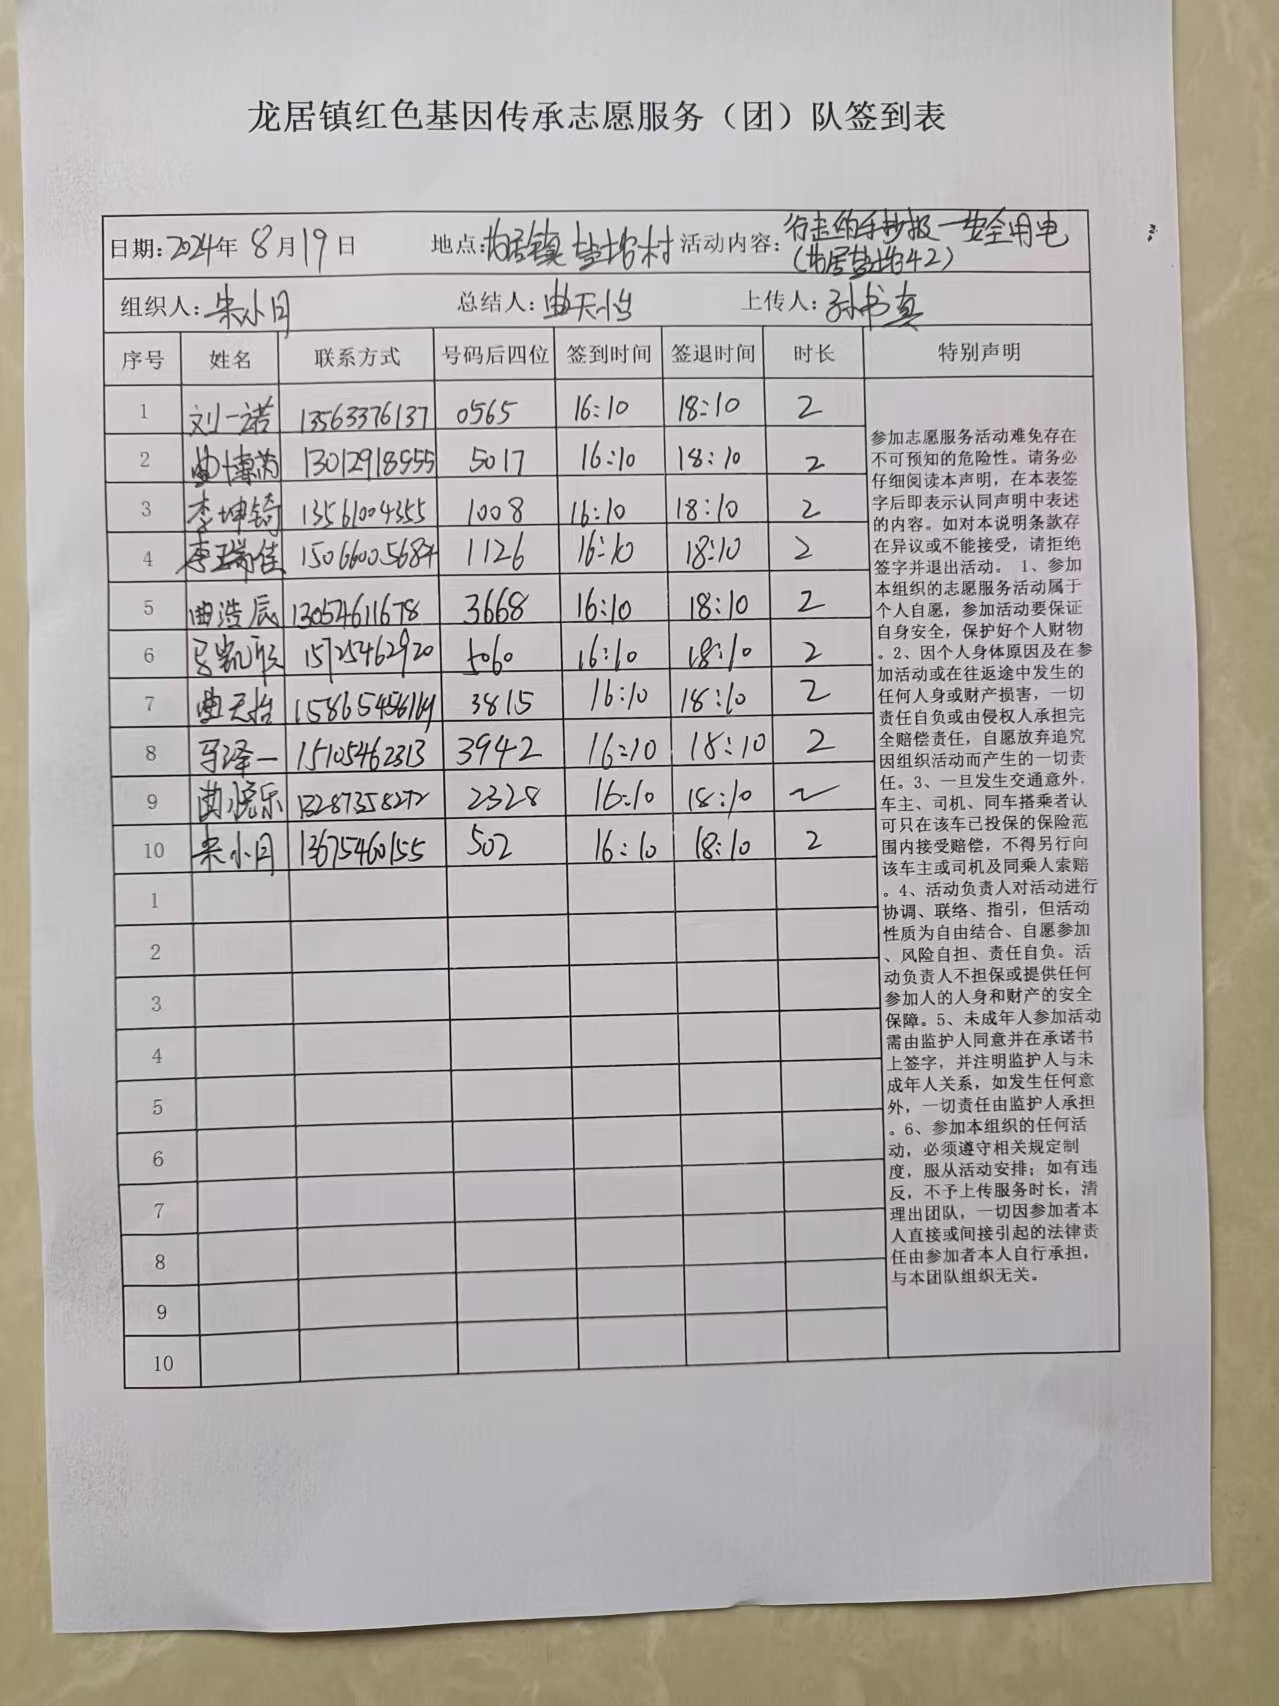 龙居镇红色基因传承志愿服务（团）队签到表
日期:2024年 8月19日 地点:龙居镇盐垛村 活动内容: 行走的手抄报—安全用电
(龙居盐垛42)
组织人:朱小月 总结人:曲天怡 上传人:孙书真
序号 姓名 联系方式 号码后四位 签到时间 签退时间 时长 特别声明
1 刘一诺 13563376137 0565 16:10 18:10 2
2 曲博 13012918555 5017 16:10 18:10 2
3 李坤锜 13561004355 1008 16:10 18:10 2
4 李瑞佳 15066005687 1126 16:10 18:10 2
5 曲浩辰 13054611678 3668 16:10 18:10 2
6 马凯 15725462920 5060 16:10 18:10 2
7 曲天怡 3815 16:10 18:10 2
8 马泽一 15105462313 3942 16:10 18:10 2
9 曲 乐 13287358272 2328 16:10 18:10 2
10 朱小月 13675460155 502 16:10 18:10 2
1
2
3
4
5
6
7
8
9
10
参加志愿服务活动难免存在
不可预知的危险性。请务必
仔细阅读本声明，在本表签
字后即表示认同声明中表述
的内容。如对本说明条款存
在异议或不能接受，请拒绝
签字并退出活动。 1、参加
本组织的志愿服务活动属于
个人自愿，参加活动要保证
自身安全，保护好个人财物
。2、因个人身体原因及在参
加活动或在往返途中发生的
任何人身或财产损害，一切
责任自负或由侵权人承担完
全赔偿责任，自愿放弃追究
因组织活动而产生的一切责
任。3、一旦发生交通意外，
车主、司机、同车搭乘者认
可只在该车已投保的保险范
围内接受赔偿，不得另行向
该车主或司机及同乘人索赔
。4、活动负责人对活动进行
协调、联络、指引，但活动
性质为自由结合、自愿参加
、风险自担、责任自负。活
动负责人不担保或提供任何
参加人的人身和财产的安全
保障。5、未成年人参加活动
需由监护人同意并在承诺书
上签字，并注明监护人与未
成年人关系，如发生任何意
外，一切责任由监护人承担
。6、参加本组织的任何活
动，必须遵守相关规定制
度，服从活动安排；如有违
反，不予上传服务时长，清
理出团队，一切因参加者本
人直接或间接引起的法律责
任由参加者本人自行承担，
与本团队组织无关。